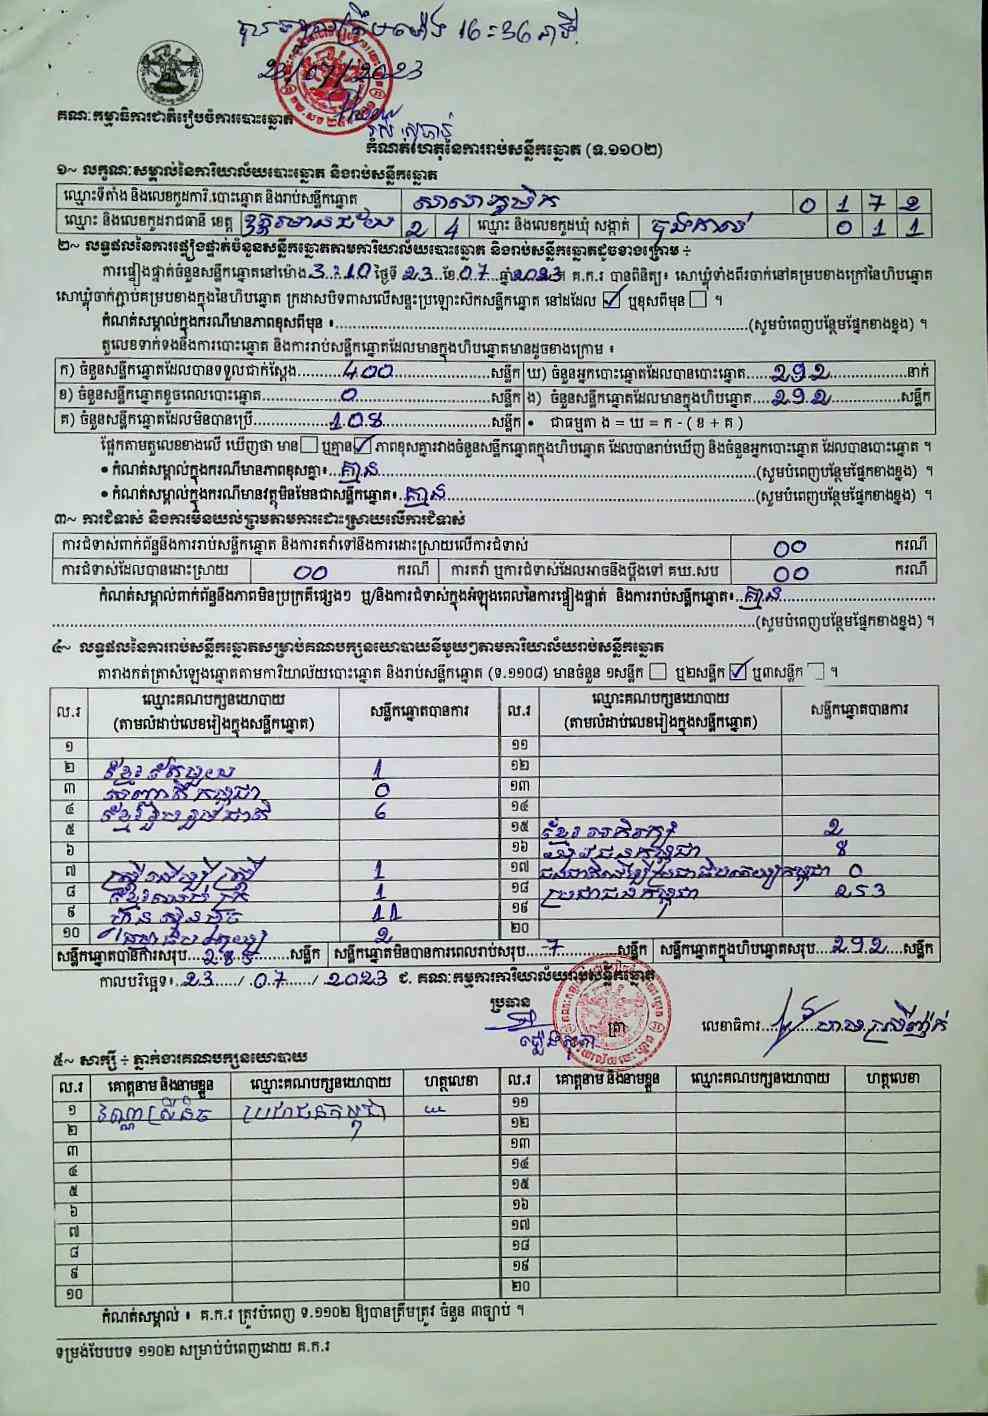 16:36 នាទី
23/07/2023
គណៈកម្មាធិការជាតិរៀបចំការបោះឆ្នោត
កំណត់ហេតុនៃការរាប់សន្លឹកឆ្នោត (ទ.១១០២)
១~ លក្ខណៈសម្គាល់នៃការិយាល័យបោះឆ្នោត និងរាប់សន្លឹកឆ្នោត
ឈ្មោះទីតាំង និងលេខកូដការិ.បោះឆ្នោត និងរាប់សន្លឹកឆ្នោត សាលាភូមិក 0 1 7 2
ឈ្មោះ និងលេខកូដរាជធានី ខេត្ត ឧត្តរមានជ័យ 2 4 ឈ្មោះ និងលេខកូដឃុំ សង្កាត់ 0 1 1
២~ លទ្ធផលនៃការផ្ទៀងផ្ទាត់ចំនួនសន្លឹកឆ្នោតតាមការិយាល័យបោះឆ្នោត និងរាប់សន្លឹកឆ្នោតដូចខាងក្រោម ÷
ការផ្ទៀងផ្ទាត់ចំនួនសន្លឹកឆ្នោតនៅម៉ោង 3:10 ថ្ងៃទី 23 ខែ 07 ឆ្នាំ 2023។ គ.ក.រ បានពិនិត្យ៖ សោឃ្លុំទាំងពីរចាក់នៅគម្របខាងក្រៅនៃហិបឆ្នោត
សោឃ្លុំចាក់ភ្ជាប់គម្របខាងក្នុងនៃហិបឆ្នោត ក្រដាសបិទពាសលើសន្ទះប្រឡោះស៊កសន្លឹកឆ្នោត នៅដដែល ☑ ឬខុសពីមុន ☐ ។
កំណត់សម្គាល់ក្នុងករណីមានភាពខុសពីមុន ៖ (សូមបំពេញបន្ថែមផ្នែកខាងខ្នង) ។
តួលេខទាក់ទងនឹងការបោះឆ្នោត និងការរាប់សន្លឹកឆ្នោតដែលមានក្នុងហិបឆ្នោតមានដូចខាងក្រោម ៖
ក) ចំនួនសន្លឹកឆ្នោតដែលបានទទួលជាក់ស្តែង 400 សន្លឹក ឃ) ចំនួនអ្នកបោះឆ្នោតដែលបានបោះឆ្នោត 292 នាក់
ខ) ចំនួនសន្លឹកឆ្នោតខូចពេលបោះឆ្នោត 0 សន្លឹក ង) ចំនួនសន្លឹកឆ្នោតដែលមានក្នុងហិបឆ្នោត 292 សន្លឹក
គ) ចំនួនសន្លឹកឆ្នោតដែលមិនបានប្រើ 108 សន្លឹក • ជាធម្មតា ង = ឃ = ក - ( ខ + គ )
ផ្អែកតាមតួលេខខាងលើ ឃើញថា មាន ☐ ឬគ្មាន ☑ ភាពខុសគ្នារវាងចំនួនសន្លឹកឆ្នោតក្នុងហិបឆ្នោត ដែលបានរាប់ឃើញ និងចំនួនអ្នកបោះឆ្នោត ដែលបានបោះឆ្នោត ។
• កំណត់សម្គាល់ក្នុងករណីមានភាពខុសគ្នា៖ គ្មាន (សូមបំពេញបន្ថែមផ្នែកខាងខ្នង) ។
• កំណត់សម្គាល់ក្នុងករណីមានវត្ថុមិនមែនជាសន្លឹកឆ្នោត៖ គ្មាន (សូមបំពេញបន្ថែមផ្នែកខាងខ្នង) ។
៣~ ការជំទាស់ និងការមិនយល់ព្រមតាមការដោះស្រាយលើការជំទាស់
ការជំទាស់ពាក់ព័ន្ធនឹងការរាប់សន្លឹកឆ្នោត និងការតវ៉ាទៅនឹងការដោះស្រាយលើការជំទាស់ 00 ករណី
ការជំទាស់ដែលបានដោះស្រាយ 00 ករណី ការតវ៉ា ឬការជំទាស់ដែលអាចនឹងប្តឹងទៅ គឃ.សប 00 ករណី
កំណត់សម្គាល់ពាក់ព័ន្ធនឹងភាពមិនប្រក្រតីផ្សេងៗ ឬ/និងការជំទាស់ក្នុងអំឡុងពេលនៃការផ្ទៀងផ្ទាត់ និងការរាប់សន្លឹកឆ្នោត៖ គ្មាន
(សូមបំពេញបន្ថែមផ្នែកខាងខ្នង) ។
៤~ លទ្ធផលនៃការរាប់សន្លឹកឆ្នោតសម្រាប់គណបក្សនយោបាយនីមួយៗតាមការិយាល័យរាប់សន្លឹកឆ្នោត
តារាងកត់ត្រាសំឡេងឆ្នោតតាមការិយាល័យបោះឆ្នោត និងរាប់សន្លឹកឆ្នោត (ទ.១១០៨) មានចំនួន ១សន្លឹក ☐ ឬ២សន្លឹក ☑ ឬ៣សន្លឹក ☐ ។
ល.រ ឈ្មោះគណបក្សនយោបាយ សន្លឹកឆ្នោតបានការ ល.រ ឈ្មោះគណបក្សនយោបាយ សន្លឹកឆ្នោតបានការ
(តាមលំដាប់លេខរៀងក្នុងសន្លឹកឆ្នោត) (តាមលំដាប់លេខរៀងក្នុងសន្លឹកឆ្នោត)
១ ១១
២ 1 ១២
៣ 0 ១៣
៤ ខ្មែររួបរួមជាតិ 6 ១៤
៥ ១៥ ខ្មែរអភិរក្ស 2
៦ ១៦ 8
៧ 1 ១៧ 0
៨ 1 ១៨ ប្រជាជនកម្ពុជា 253
៩ ហ៊្វុនស៊ិនប៉ិច 11 ១៩
១០ 2 ២០
សន្លឹកឆ្នោតបានការសរុប 285 សន្លឹក សន្លឹកឆ្នោតមិនបានការពេលរាប់សរុប 7 សន្លឹក សន្លឹកឆ្នោតក្នុងហិបឆ្នោតសរុប 292 សន្លឹក
កាលបរិច្ឆេទ៖ 23 / 07 / 2023 ជ. គណៈកម្មការការិយាល័យរាប់សន្លឹកឆ្នោត
ប្រធាន ត្រា លេខាធិការ
៥~ សាក្សី ÷ ភ្នាក់ងារគណបក្សនយោបាយ
ល.រ គោត្តនាម និងនាមខ្លួន ឈ្មោះគណបក្សនយោបាយ ហត្ថលេខា ល.រ គោត្តនាម និងនាមខ្លួន ឈ្មោះគណបក្សនយោបាយ ហត្ថលេខា
១ ប្រជាជនកម្ពុជា ១១
២ ១២
៣ ១៣
៤ ១៤
៥ ១៥
៦ ១៦
៧ ១៧
៨ ១៨
៩ ១៩
១០ ២០
កំណត់សម្គាល់ ៖ គ.ក.រ ត្រូវបំពេញ ទ.១១០២ ឱ្យបានត្រឹមត្រូវ ចំនួន ៣ច្បាប់ ។
ទម្រង់បែបបទ ១១០២ សម្រាប់បំពេញដោយ គ.ក.រ